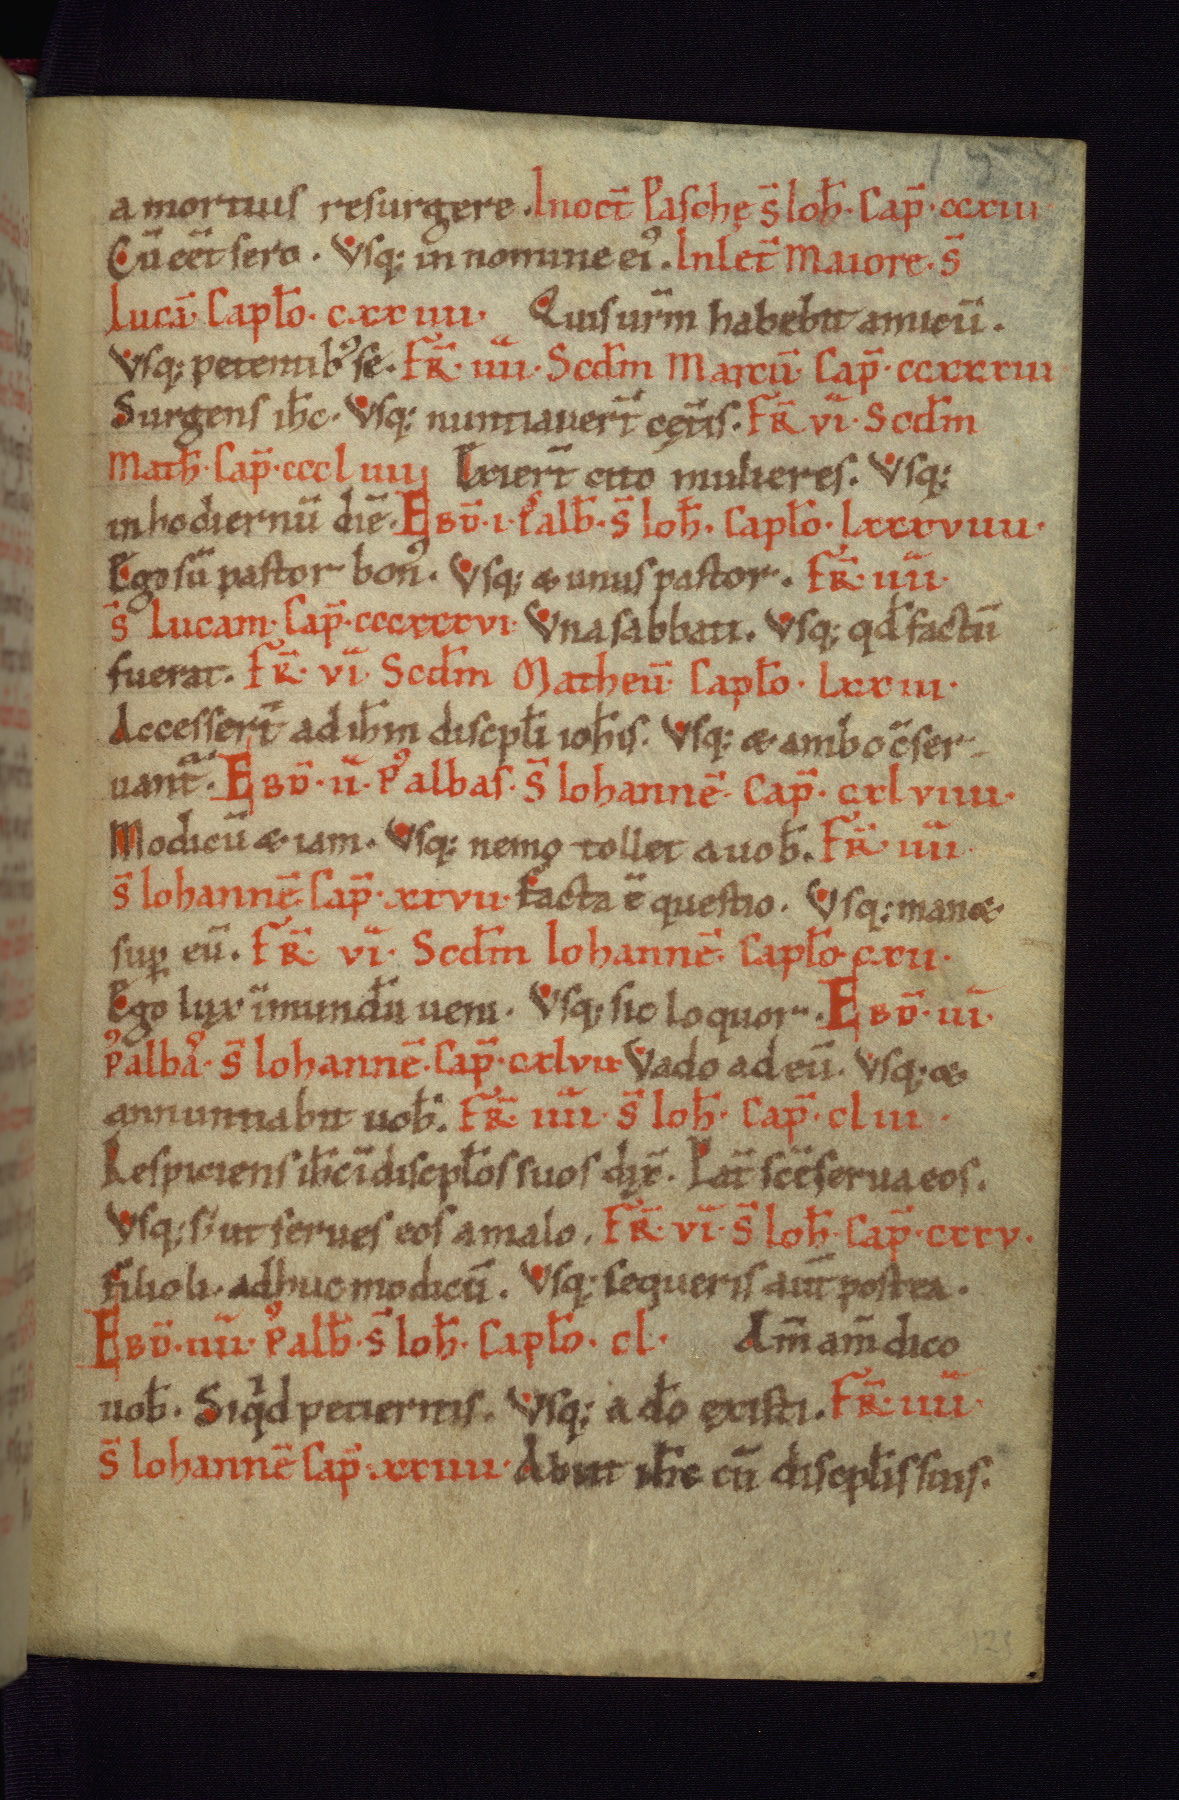 a mortuis resurgere. In oct̄ Pasche s̄ Ioħ. Cap̄. ccxiii
Cū eēt sero. Vsq; in nomine ei⁹. In let̄ Maiore. s̄
Lucā. Capl̄o. cxxiiii. Quis ur̄m habebit amicū.
Vsq; petentib⁹ se. Fr̄. iiii. Scd̄m Marcū. Cap̄. ccxxxiii
Surgens ih̄c. Vsq; nuntiauer̄t cęt̄is. Fr̄ vi. Scd̄m
Math̄. Cap̄. cccliiii Exier̄t cito mulieres. Vsq;
in hodiernū diē. Ebd̄. i. p⁹ alb̄. s̄ Ioħ. Capl̄o. lxxxviiii.
Ego sū pastor bon⁹. Vsq; & unus pastor. Fr̄. iiii.
s̄ Lucam. Cap̄. cccxxxvi. Vna sabbati. Vsq; qd̄ factū
fuerat. Fr̄. vi. Scd̄m Matheū. Capl̄o. lxxiii.
Accesser̄t ad ih̄m discpl̄i ioh̄is. Vsq; & ambo c̄ser
uant̄. Ebd̄. ii. P⁹ albas. s̄ Iohannē. Cap̄. cxlviiii.
Modicū & iam. Vsq; nemo tollet a uob̄. Fr̄. iiii.
s̄ Iohannē. Cap̄. xxvii. Facta ē questio. Vsq; man&
sup̄ eū. Fr̄. vi. Scd̄m Iohannē. Capl̄o. cxii.
Ego lux ī mundū ueni. Vsq; sic loquor. Ebd̄. iii.
P⁹ alba⁹. s̄ Iohannē. Cap̄. cxlvii Vado ad eū. Vsq; &
annuntiabit uob̄. Fr̄. iiii. s̄ Ioħ. Cap̄. cliii.
Respiciens ih̄c ī discipl̄os suos dix̄. Pat̄ sc̄e serua eos.
Vsq; s; ut serues eos a malo. Fr̄. vi. s̄ Ioħ. Cap̄. cxxv.
Filioli. adhuc modicū. Vsq; sequeris aut̄ postea.
Ebd̄. iiii. p⁹ alb̄. s̄ Ioħ. Capl̄o. cl. Am̄ am̄ dico
uob̄. Siqͥd petieritis. Vsq; a dō existi. Fr̄. iiii.
s̄ Iohannē Cap̄. xxiiii. Abiit ih̄c cū discipl̄is suis.